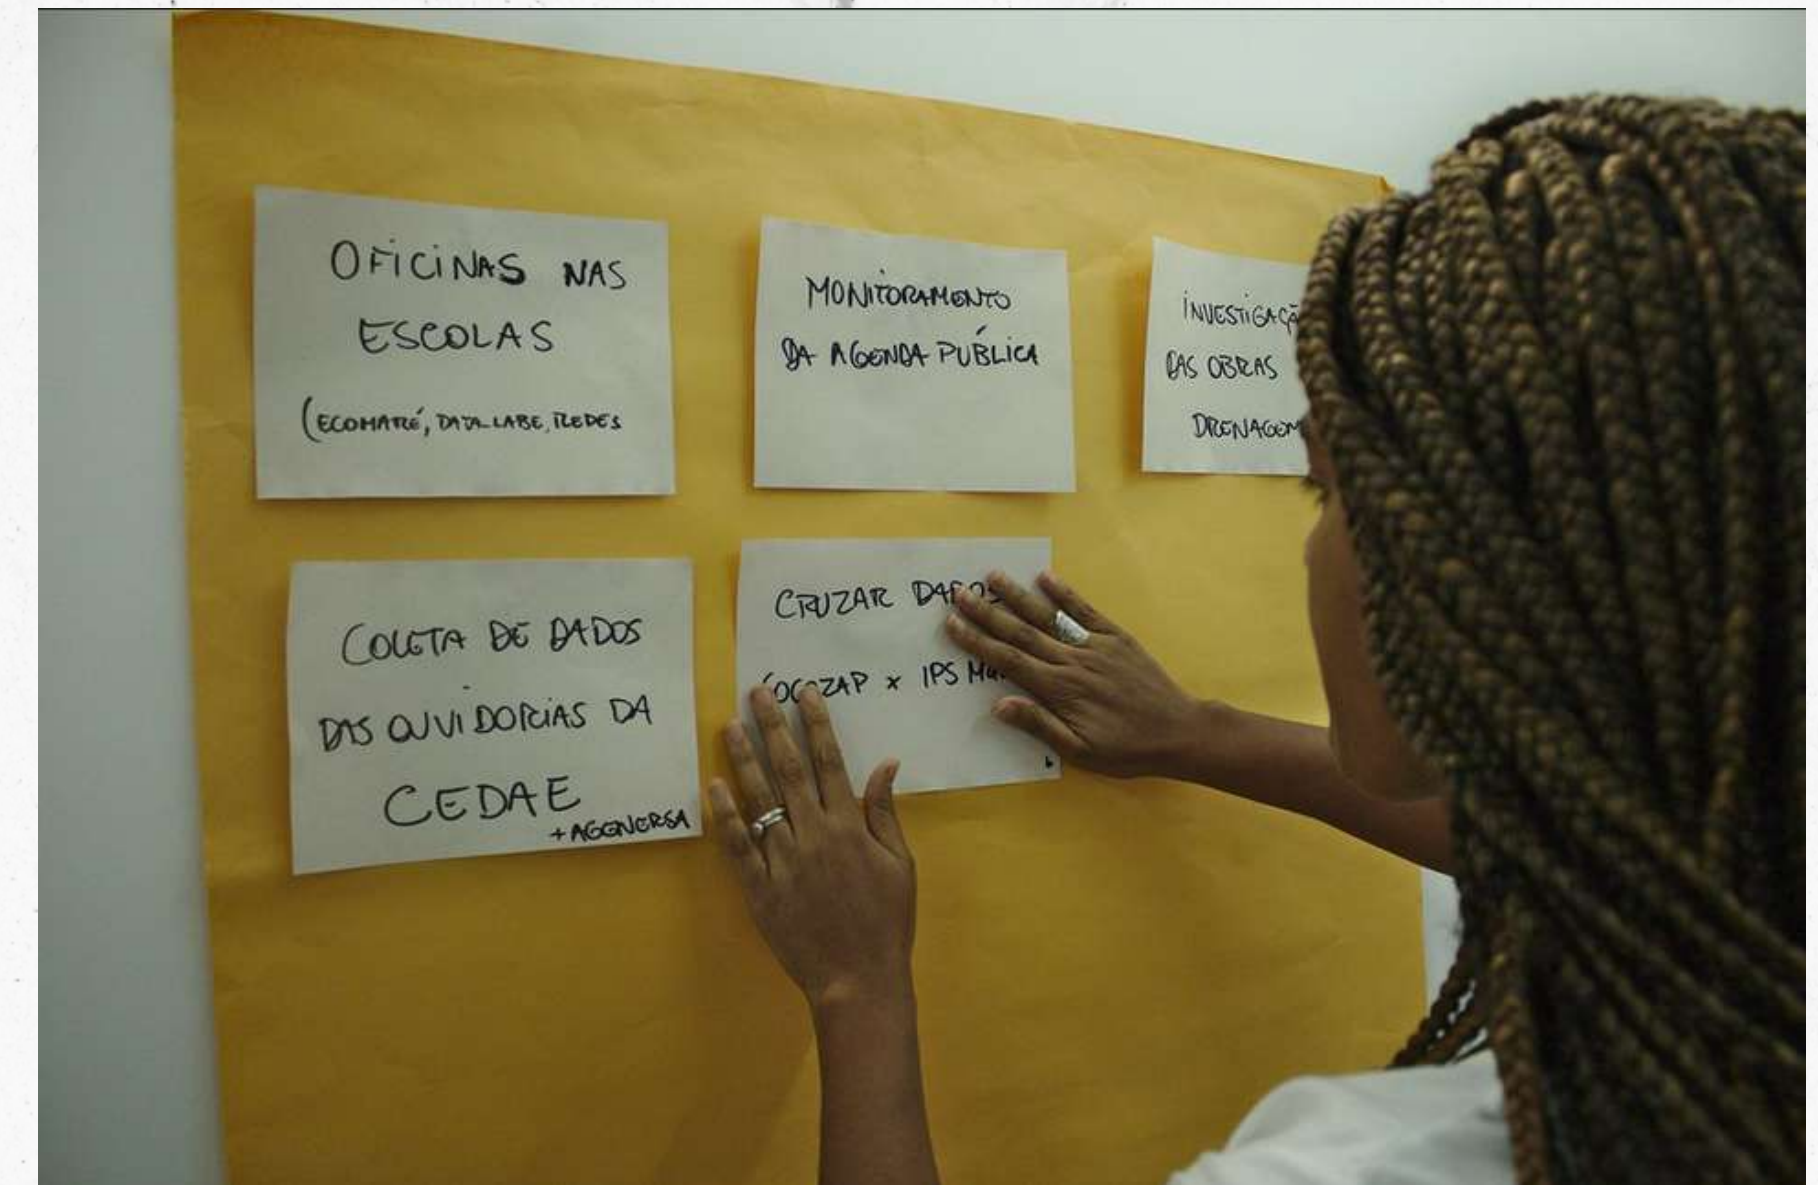 OFICINAS NAS
ESCOLAS
(ECOMARÉ, DATA_LABE, REDES
MONITORAMENTO
DA AGENDA PÚBLICA
INVESTIGAÇÃ
DAS OBRAS
DRENAGEM
COLETA DE DADOS
DAS OUVIDORIAS DA
CEDAE
+ AGENERSA
CRUZAR DADOS
COCOZAP x IPS